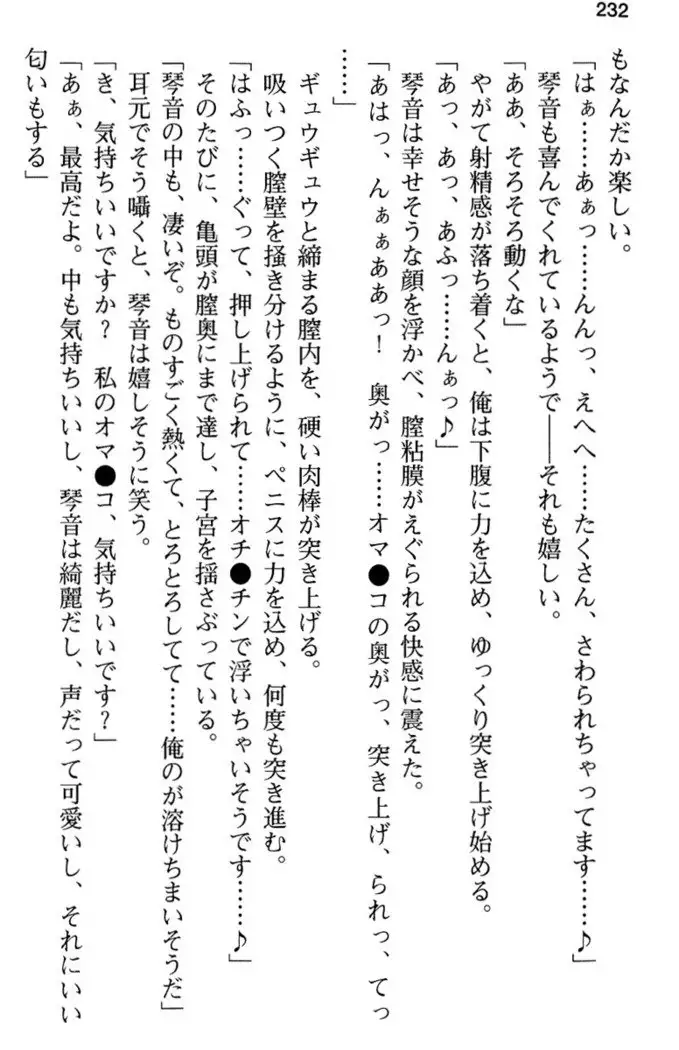 232
もなんだか楽しい。
「はぁ……あぁっ……んんっ、えへへ……たくさん、さわられちゃってます……♪」
琴音も喜んでくれているようで――それも嬉しい。
「ああ、そろそろ動くな」
やがて射精感が落ち着くと、俺は下腹に力を込め、ゆっくり突き上げ始める。
「あっ、あっ、あふっ……んぁっ♪」
琴音は幸せそうな顔を浮かべ、膣粘膜がえぐられる快感に震えた。
「あはっ、んぁぁああっ！　奥がっ……オマ●コの奥がっ、突き上げ、られっ、てっ
……」
ギュウギュウと締まる膣内を、硬い肉棒が突き上げる。
吸いつく膣壁を掻き分けるように、ペニスに力を込め、何度も突き進む。
「はふっ……ぐって、押し上げられて……オチ●チンで浮いちゃいそうです……♪」
そのたびに、亀頭が膣奥にまで達し、子宮を揺さぶっている。
「琴音の中も、凄いぞ。ものすごく熱くて、とろとろしてて……俺のが溶けちまいそうだ」
耳元でそう囁くと、琴音は嬉しそうに笑う。
「き、気持ちいいですか？　私のオマ●コ、気持ちいいです？」
「あぁ、最高だよ。中も気持ちいいし、琴音は綺麗だし、声だって可愛いし、それにいい
匂いもする」